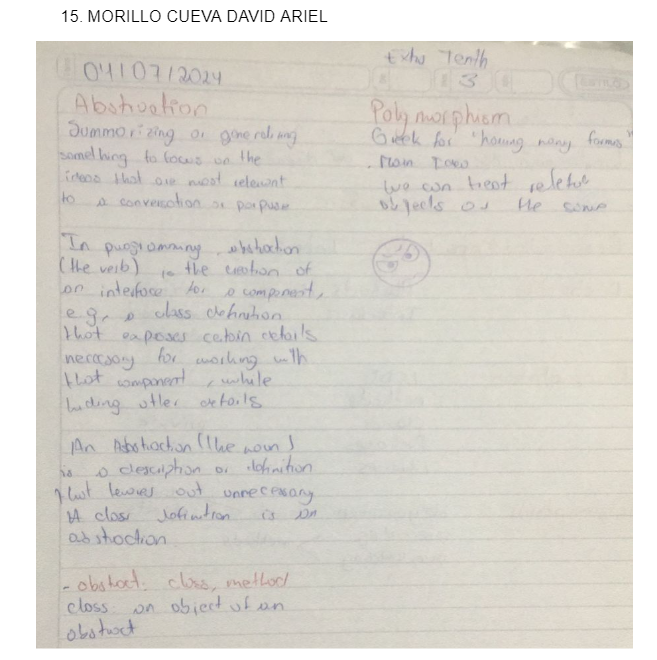 15. MORILLO CUEVA DAVID ARIEL
04/07/2024
Abstraction
Summarizing or generalizing
something to focus on the
ideas that are most relevant
to a conversation or purpose
In programming, abstraction
(the verb) is the creation of
an interface for a component,
e.g, a class definition
that exposes certain details
necessary for working with
that component, while
hiding other details
An Abstraction (the noun)
is a description or definition
that leaves out unnecessary
A class definition is an
abstraction
- abstract: class, method
class an object of an
abstract
Tenth
3
Polymorphism
Greek for "having many forms"
Main Idea
we can treat
objects as the same